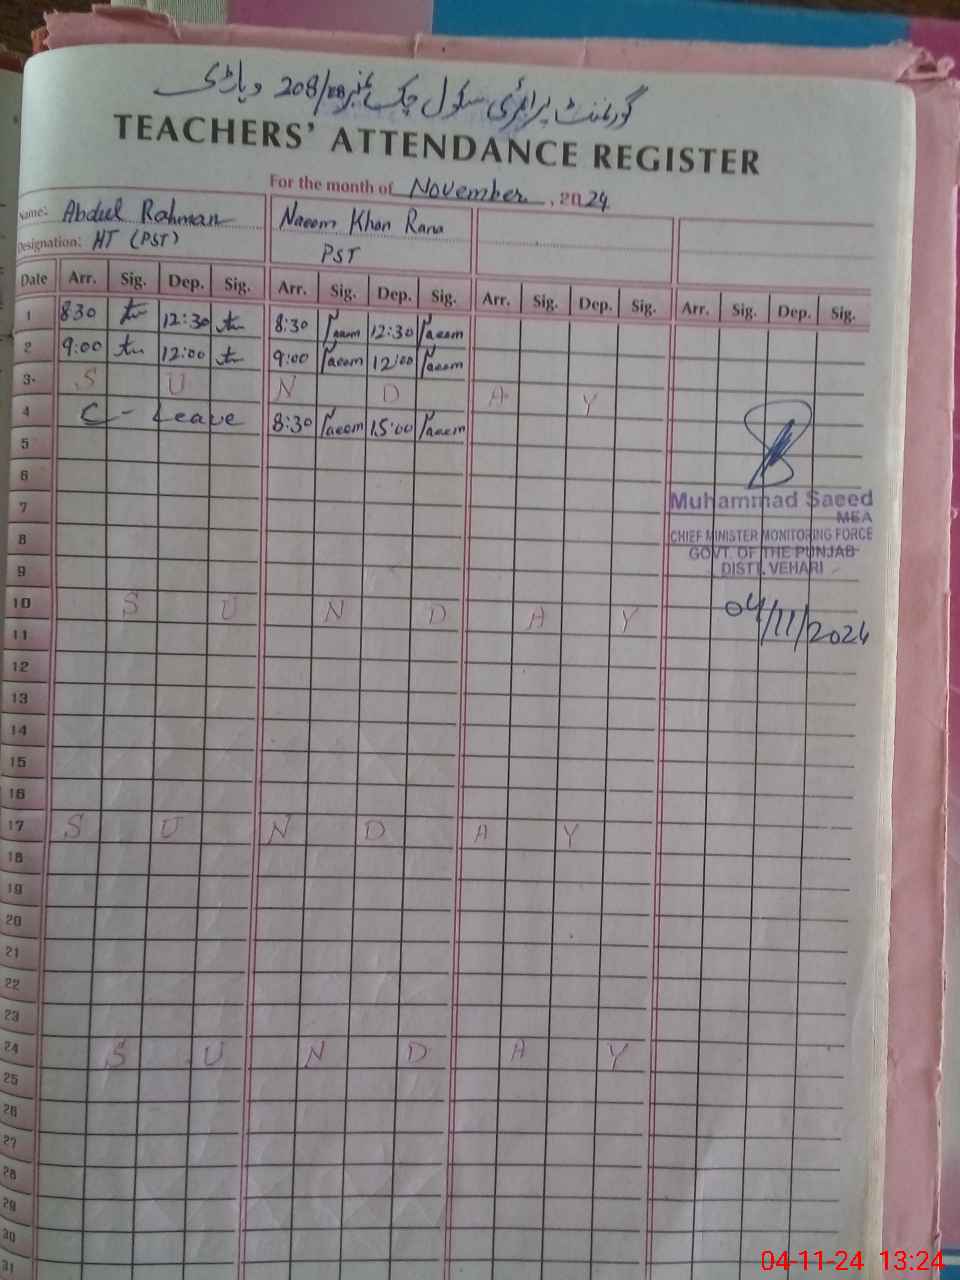 گورنمنٹ پرائمری سکول چک نمبر 208/EB وہاڑی
TEACHERS' ATTENDANCE REGISTER
For the month of November, 2024
Name: Abdul Rahman Naeem Khan Rana
Designation: HT (PST) PST
Date Arr. Sig. Dep. Sig. Arr. Sig. Dep. Sig. Arr. Sig. Dep. Sig. Arr. Sig. Dep. Sig.
1 830 12:30 8:30 Naeem 12:30 Naeem
2 9:00 12:00 9:00 Naeem 12:00 Naeem
3 S U N D A Y
4 C - Leave 8:30 Naeem 15:00 Naeem
5
6
7
Muhammad Saeed
MEA
8
CHIEF MINISTER MONITORING FORCE
GOVT. OF THE PUNJAB
9
DISTT. VEHARI
10 S U N D A Y
04/11/2024
11
12
13
14
15
16
17 S U N D A Y
18
19
20
21
22
23
24 S U N D A Y
25
26
27
28
29
30
31
04-11-24 13:24